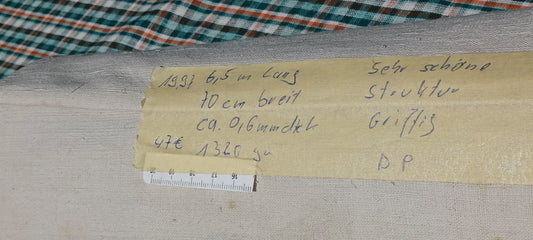 1997 6,5 m lang
70 cm breit
ca. 0,6 mm dick
47€ 1320 gr
Sehr schöne
Struktur
Griffig
DP